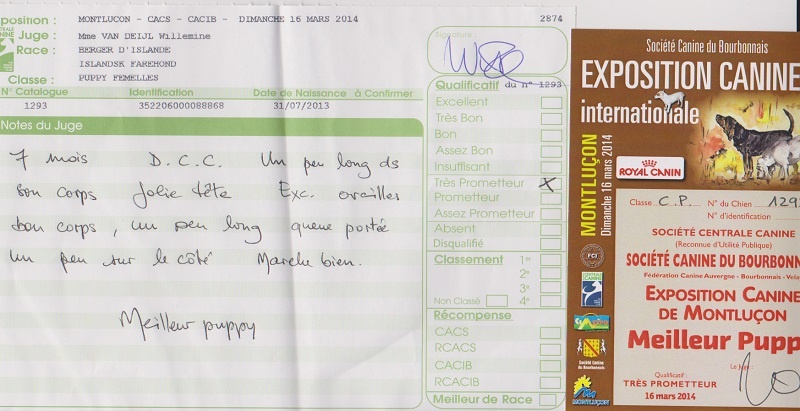 position : MONTLUCON - CACS - CACIB - DIMANCHE 16 MARS 2014 2874
Juge : Mme VAN DEIJL Willemine
Race : BERGER D'ISLANDE
ISLANDSK FAREHOND
Classe : PUPPY FEMELLES
Signature :
N° Catalogue Identification Date de Naissance à Confirmer
1293 352206000088868 31/07/2013
Notes du Juge
7 mois D.C.C. Un peu long ds
bon corps Jolie tête Exc. oreilles
bon corps, un peu long queue portée
un peu sur le côté Marche bien.
Meilleur puppy
Qualificatif du n° 1293
Excellent
Très Bon
Bon
Assez Bon
Insuffisant
Très Prometteur X
Prometteur
Assez Prometteur
Absent
Disqualifié
Classement 1er
2e
3e
Non Classé 4e
Récompense
CACS
RCACS
CACIB
RCACIB
Meilleur de Race
Société Canine du Bourbonnais
EXPOSITION CANINE
internationale
MONTLUÇON
Dimanche 16 mars 2014
ROYAL CANIN
Classe C.P. N° du Chien 1293
N° d'identification
SOCIÉTÉ CENTRALE CANINE
(Reconnue d'Utilité Publique)
SOCIÉTÉ CANINE DU BOURBONNAIS
Fédération Canine Auvergne - Bourbonnais - Vela
EXPOSITION CANINE
DE MONTLUÇON
Meilleur Pupp
Le Juge
Qualificatif :
TRÈS PROMETTEUR
16 mars 2014
FCI
CENTRALE
CANINE
Société Canine
du Bourbonnais
MONTLUÇON